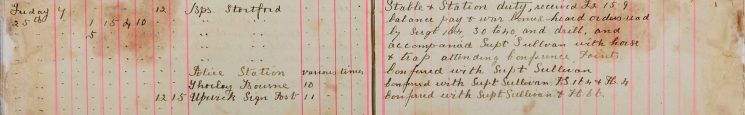 Friday 7 12 Bps. Stortford Stable & Station duty, received £2. 15. 9
25th 1 15 4 10 " " balance pay & war bonus heard orders read
5 " " by Sergt 104, 30 to 40, and drill, and
" " accompanied Supt Sullivan with horse
" " & trap attending Conference Points
Police Station various times Conferred with Supt Sullivan
Thorley Bourne 10 Conferred with Supt Sullivan P.S. 104 & H. 4
12 15 Upwick Sign Post 11 Conferred with Supt Sullivan & H 66.